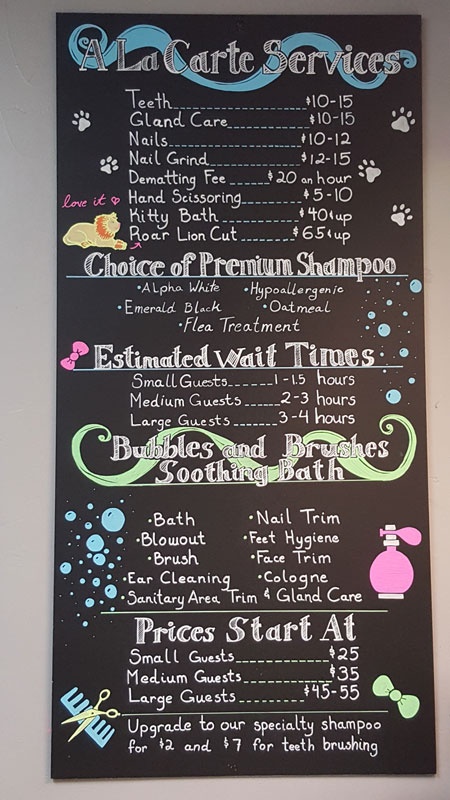 A La Carte Services
Teeth $10-15
Gland Care $10-15
Nails $10-12
Nail Grind $12-15
Dematting Fee $20 an hour
love it Hand Scissoring $5-10
Kitty Bath $40&up
Roar Lion Cut $65&up
Choice of Premium Shampoo
•Alpha White •Hypoallergenic
•Emerald Black •Oatmeal
•Flea Treatment
Estimated Wait Times
Small Guests 1-1.5 hours
Medium Guests 2-3 hours
Large Guests 3-4 hours
Bubbles and Brushes
Soothing Bath
•Bath •Nail Trim
•Blowout •Feet Hygiene
•Brush •Face Trim
•Ear Cleaning •Cologne
•Sanitary Area Trim & Gland Care
Prices Start At
Small Guests $25
Medium Guests $35
Large Guests $45-55
Upgrade to our specialty shampoo
for $2 and $7 for teeth brushing